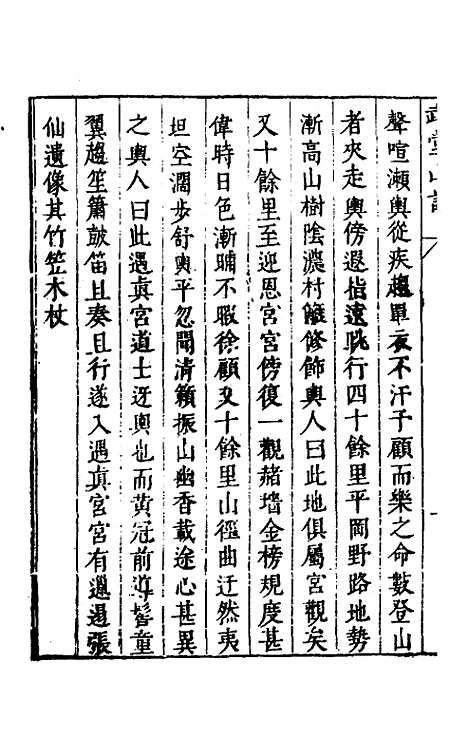 武當山記
聲喧瀨輿從疾趨單衣不汗予顧而樂之命數登山
者夾走輿傍遐指遠眺行四十餘里平岡野路地勢
漸高山樹陰濃村籬修飾輿人曰此地俱屬宮觀矣
又十餘里至迎恩宮宮傍復一觀赭墻金榜規度甚
偉時日色漸晡不暇徐顧又十餘里山徑曲迂然夷
坦空濶步舒輿平忽聞清籟振山幽香載途心甚異
之輿人曰此遇眞宮道士迓輿也而黄冠前導髫童
翼趨笙簫鼓笛且奏且行遂入遇眞宮宮有邋遢張
仙遺像其竹笠木杖